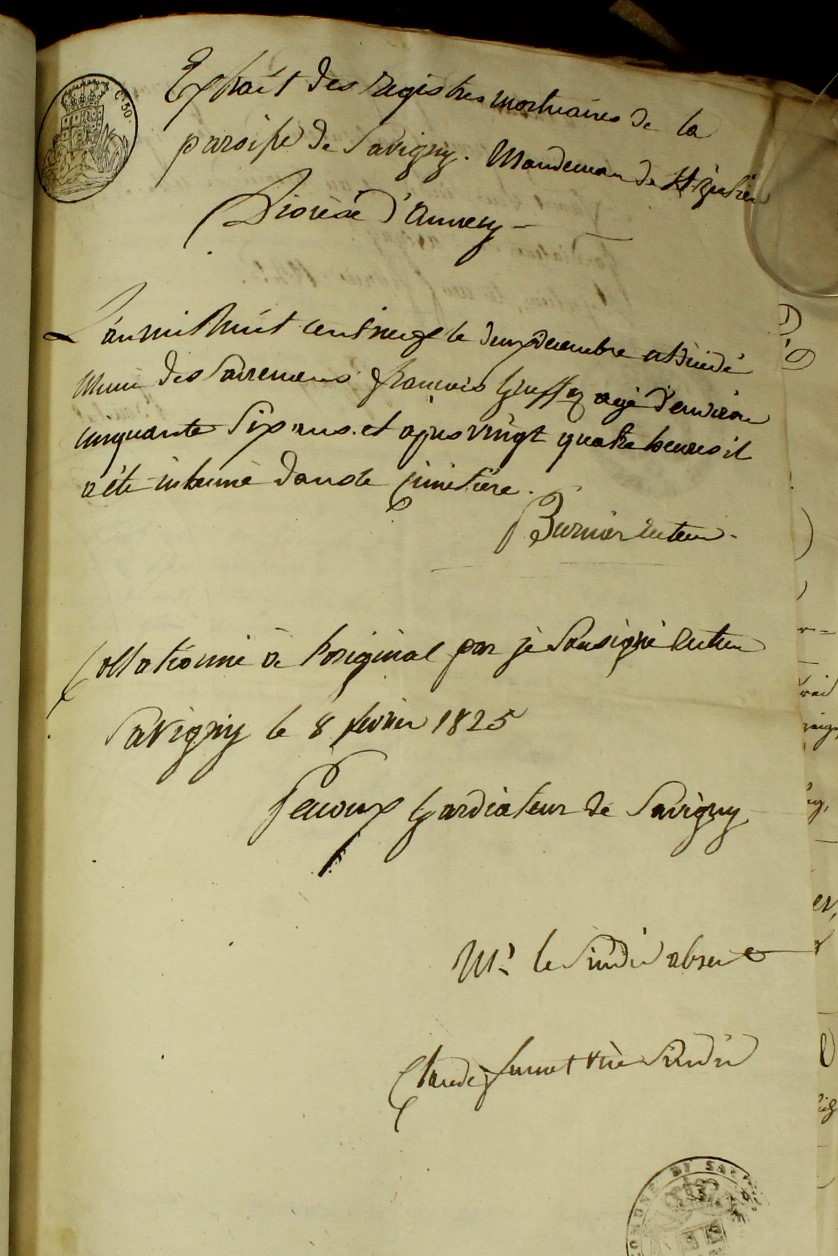 C. 50.
Extrait des registres mortuaires de la
paroisse de Savigny. Mandeman de St julien
Diocèse d'Annecy
L'an mil huit cent neuf le deux Decembre est décédé
muni des Sacremens francois age d'environ
cinquante Six ans. et après vingt quatre heures il
a été inhumé dans le cimetière.
Burnier Recteur.
Collationné à l'original par je Sousigné Recteur
Savigny le 8 fevrier 1825
Pacoux de Savigny
Mr. le Sindic absent
Claude vice Sindic
COMUNE DI SA